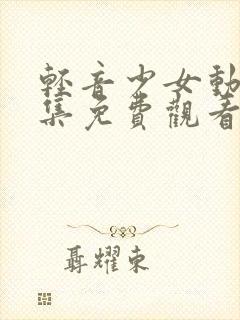 輕音少女動
集免費觀看
聶耀東